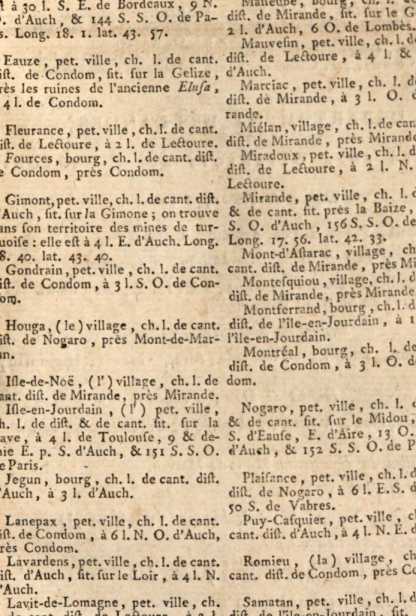 à 30 l. S. E. de Bordeaux, 9 N.
d'Auch, & 144 S. S. O. de Pa-
s. Long. 18. 1. lat. 43. 57.
Eauze, pet. ville, ch. l. de cant.
dist. de Condom, sit. sur la Gelize,
rès les ruines de l'ancienne Elusa,
4 l. de Condom.
Fleurance, pet. ville, ch. l. de cant.
ist. de Lectoure, à 2 l. de Lectoure.
Fources, bourg, ch. l. de cant. dist.
e Condom, près Condom.
Gimont, pet. ville, ch. l. de cant. dist.
'Auch, sit. sur la Gimone; on trouve
ans son territoire des mines de tur-
uoise: elle est à 4 l. E. d'Auch. Long.
8. 40. lat. 43. 40.
Gondrain, pet. ville, ch. l. de cant.
ist. de Condom, à 3 l. S. O. de Con-
om.
Houga, (le) village, ch. l. de cant.
ist. de Nogaro, près Mont-de-Mar-
an.
Isle-de-Noë, (l') village, ch. l. de
cant. dist. de Mirande, près Mirande.
Isle-en-Jourdain, (l') pet. ville,
h. l. de dist. & de cant. sit. sur la
ave, à 4 l. de Toulouse, 9 & de-
ie E. p. S. d'Auch, & 151 S. S. O.
e Paris.
Jegun, bourg, ch. l. de cant. dist.
'Auch, à 3 l. d'Auch.
Lanepax, pet. ville, ch. l. de cant.
ist. de Condom, à 6 l. N. O. d'Auch,
rès Condom.
Lavardens, pet. ville, ch. l. de cant.
ist. d'Auch, sit. sur le Loir, à 4 l. N.
'Auch.
Lavit-de-Lomagne, pet. ville, ch.
de cant. dist. de Lectoure, à 3 l.
dist. de Mirande, sit. sur le G
2 l. d'Auch, 6 O. de Lombès.
Mauvesin, pet. ville, ch. l. d
dist. de Lectoure, à 4 l. &
d'Auch.
Marciac, pet. ville, ch. l. d
dist. de Mirande, à 3 l. O. d
rande.
Miélan, village, ch. l. de can
dist. de Mirande, près Mirande
Miradoux, pet. ville, ch. l. d
dist. de Lectoure, à 2 l. N.
Lectoure.
Mirande, pet. ville, ch. l.
& de cant. sit. près la Baize,
S. O. d'Auch, 156 S. S. O. de
Long. 17. 56. lat. 42. 33.
Mont-d'Astarac, village, ch
cant. dist. de Mirande, près Mi
Montesquiou, village, ch. l. d
dist. de Mirande, près Mirande
Montferrand, bourg, ch. l. d
dist. de l'île-en-Jourdain, à 1
l'île-en-Jourdain.
Montréal, bourg, ch. l. de
dist. de Condom, à 3 l. O. d
dom.
Nogaro, pet. ville, ch. l.
& de cant. sit. sur le Midou,
S. d'Eause, E. d'Aire, 13 O.
d'Auch, & 152 S. S. O. de P
Plaisance, pet. ville, ch. l. d
dist. de Nogaro, à 6 l. E. S. d
50 S. de Vabres.
Puy-Casquier, pet. ville, ch
cant. dist. d'Auch, à 4 l. N. E.
Romieu, (la) village, ch
cant. dist. de Condom, près Co
Samatan, pet. ville, ch. l. d
dist. de l'île-en-Jourdain, sit.